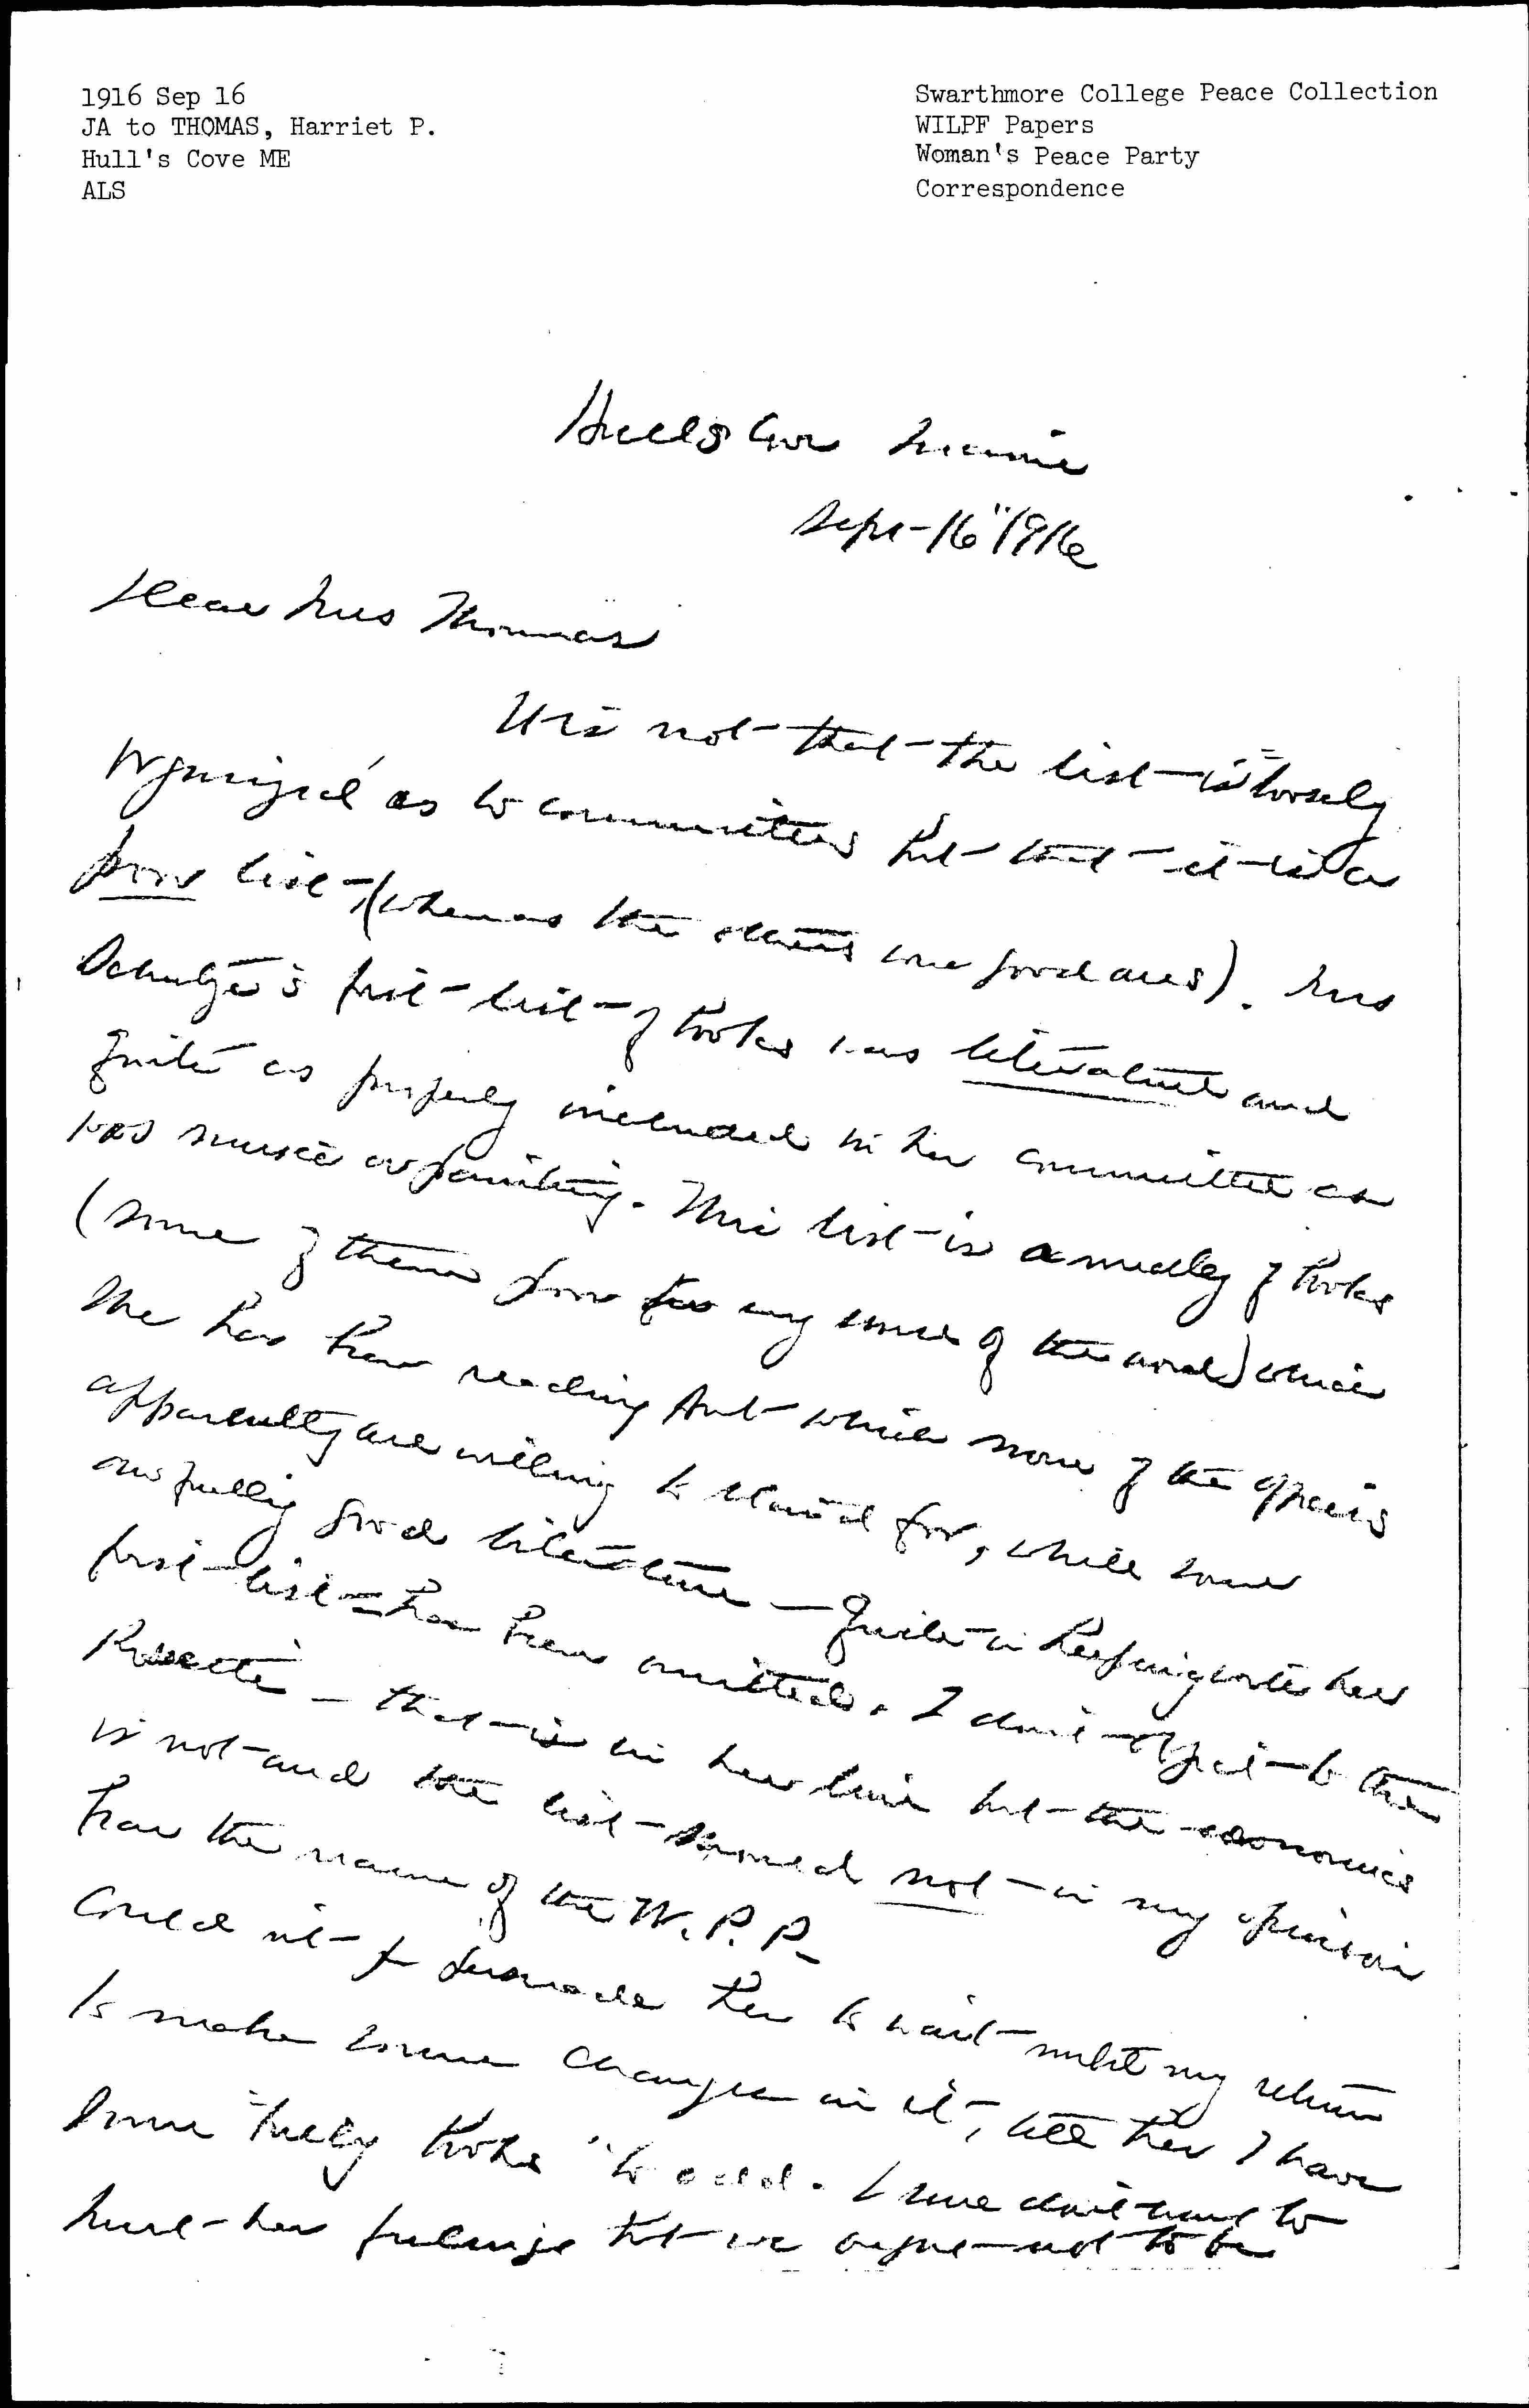 1916 Sep 16
JA to THOMAS, Harriet P.
Hull's Cove ME
ALS
Swarthmore College Peace Collection
WILPF Papers
Woman's Peace Party
Correspondence
Hulls Cove Maine
Sept - 16" 1916
Dear Mrs Thomas
It is not that the list is "loosely
organized" as to committees but that it is a
poor list, (whereas the others were good ones). Mrs
Schultze's first list of books was literature and
quite as properly included in her committee as
was music or painting. This list is a medley of books
(some of them poor in any sense of the word) which
she has been reading but which none of the experts
apparently are willing to stand for, while some
really good literature — quite in keeping with her
first list — has been omitted. I don't object to the
Rossetti — that is in her line but the economics
is not and the list should not in my opinion
bear the name of the W. P. P.
Could you persuade her to wait until my return
to make some changes in it, tell her I have
some "bully books" to add. I sure don't want to
hurt her feelings but we ought not to be